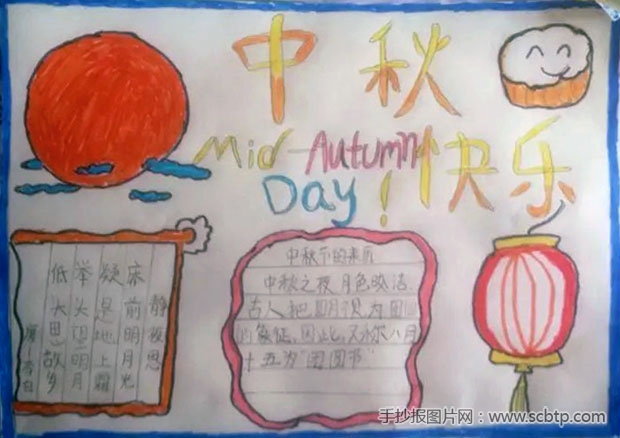 中秋
快乐
Mid-Autumn
Day!
静夜思
床前明月光
疑是地上霜
举头望明月
低头思故乡
唐-李白
中秋节的来历
中秋之夜,月色皎洁.
古人把圆月视为团圆
的象征,因此,又称八月
十五为“团圆节”
手抄报图片网:www.scbtp.com